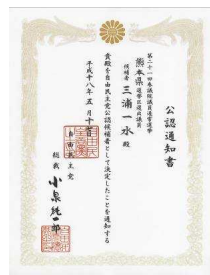 公認通知書
第二十一回参議院議員通常選挙
熊本県選挙区選出議員
候補者 三浦一水 殿
貴殿を自由民主党公認候補者として決定したことを通知する
平成十八年五月十一日
自由民主党
総裁 小泉純一郎